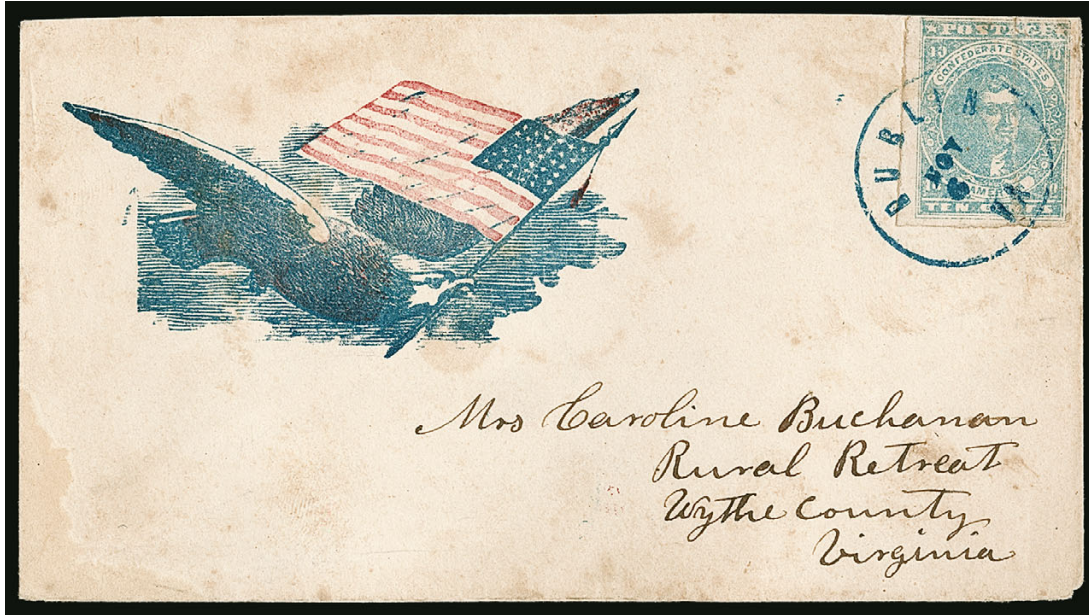 POSTAGE
10 10
CONFEDERATE STATES
AMERICA
TEN CENTS
DUBLIN
VA
NOV
6
Mrs Caroline Buchanan
Rural Retreat
Wythe County
Virginia